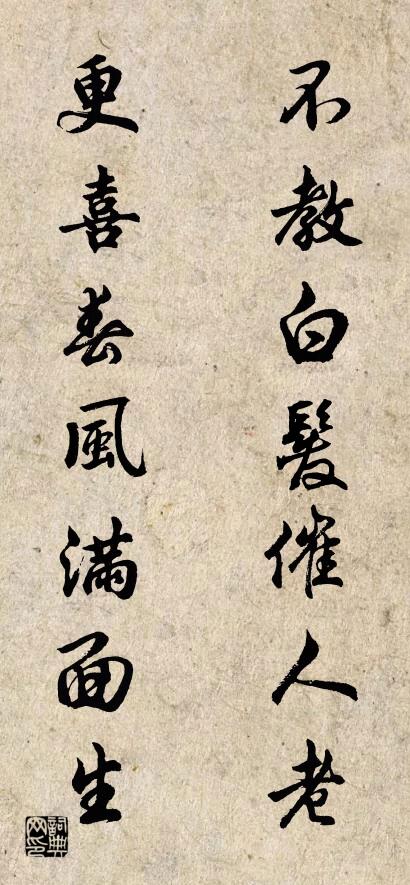 不教白髮催人老
更喜春風滿面生
詞典网印